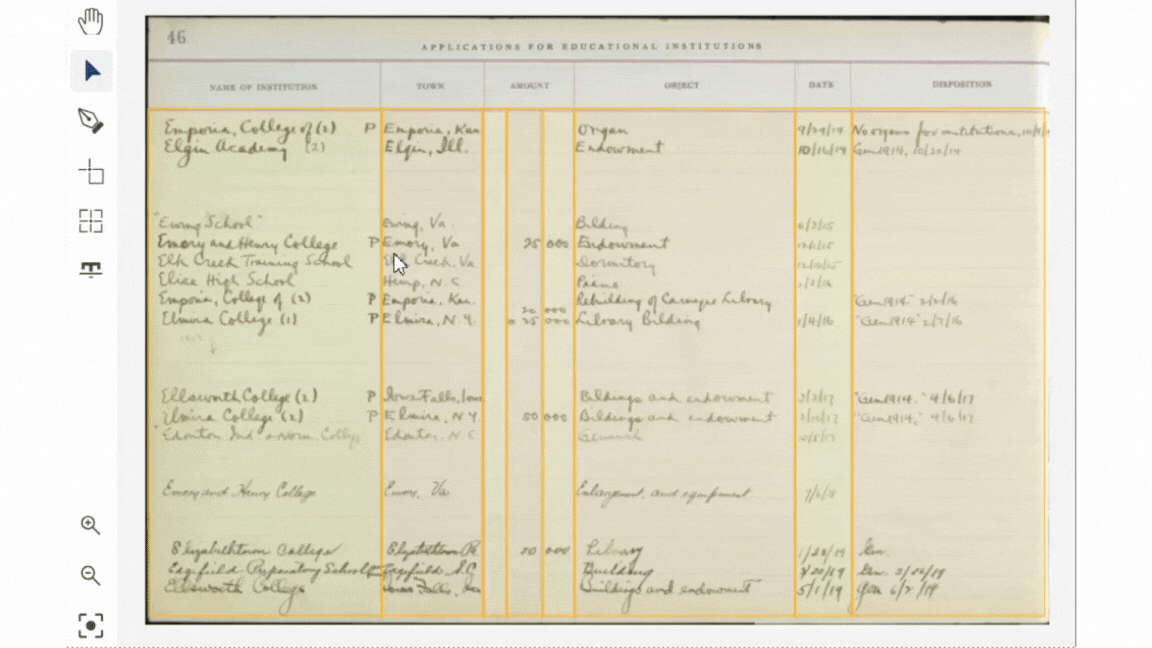 46
APPLICATIONS FOR EDUCATIONAL INSTITUTIONS
NAME OF INSTITUTION TOWN AMOUNT OBJECT DATE DISPOSITION
Emporia, College of (2) P Emporia, Kan Organ 9/29/14 No organs for institutions,
Elgin Academy (2) Elgin, Ill. Endowment 10/16/14 Gen 1914, 10/20/14
"Ewing School" Ewing, Va. Bilding 6/3/15
Emory and Henry College P Emory, Va 25 000 Endowment
Elk Creek Training School Elk Creek, Va. Dormitory
Elise High School Hemp, N.C. Piano
Emporia, College of (2) P Emporia, Kan. 20 000 Rebuilding of Carnegie Library "Gen 1914"
Elmira College (1) P Elmira, N.Y. 25 000 Library Bilding 1/4/16 "Gen 1914" 2/7/16
Ellsworth College (2) P Iowa Falls, Bildings and endowment "Gen 1914." 4/6/17
Elmira College (2) P Elmira, NY. 50 000 Bildings and endowment "Gen 1914," 4/6/17
Edenton Ind Norm College Edenton, N.C General
Emory and Henry College Emory, Va Enlargement and equipment
Elizabethtown College Elizabethtown Pa. 50 000 Library 1/28/19 Gen.
Edgefield Preparatory School Edgefield S.C Building Gen.
Ellsworth College Iowa Falls, Buildings and endowment 5/1/19 Gen 6/2/19